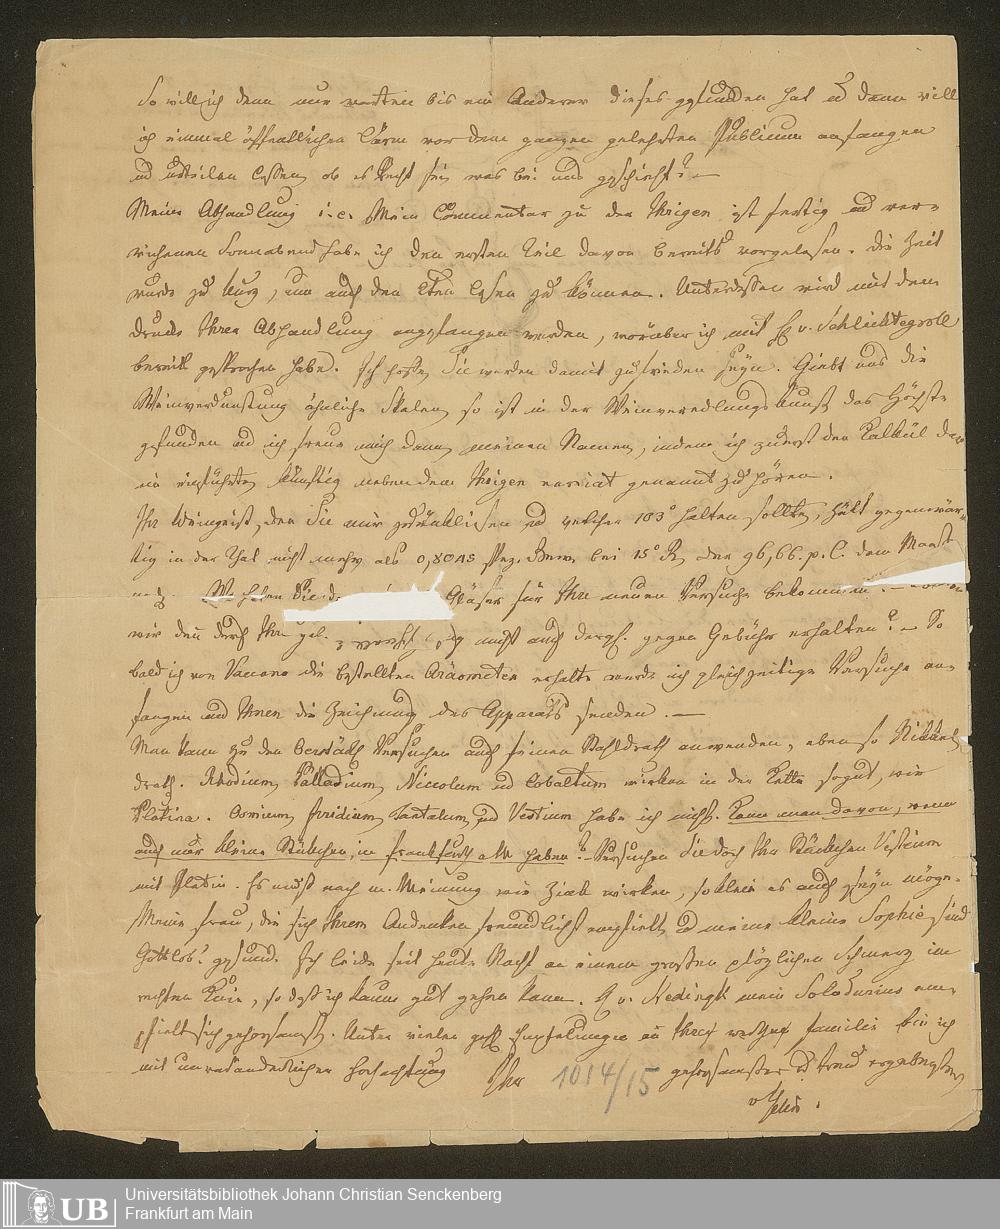 So will ich denn nur warten bis ein Anderer dieses gefunden hat und dann will
ich einmal öffentlichen Lärm vor dem ganzen gelehrten Publicum anfangen
und urteilen lassen, ob es Recht sei, was bei uns geschieht? —
Meine Abhandlung i. e. Mein Commentar zu der Ihrigen ist fertig und ver-
wichenen Sonnabend habe ich den ersten Teil davon bereits vorgelesen. Die Zeit
wurde zu kurz, um auch den 2ten lesen zu können. Unterdessen wird mit dem
Drucke Ihrer Abhandlung angefangen werden, worüber ich mit H v. Schlichtegroll
bereits gesprochen habe. Ich hoffe, Sie werden damit zufrieden seyn. Giebt uns die
Weinverdunstung ähnliche Skalen, so ist in der Weinveredlungskunst das Höchste
gefunden und ich freue mich dann meinen Namen, indem ich zuerst den Kalkül da-
rin einführte, künftig neben dem Ihrigen genannt zu hören.
Ihr Weingeist, den Sie mir zuschickten und welcher 103° halten sollte, hält gegenwär-
tig in der That nicht mehr als 0,8045 spez. Gew. bei 15° R, der 96,66 p. C. dem Maase
nach. Wo haben Sie Gläser für Ihre neuen Versuche bekommen. —
wir den durch Ihre gel. nicht auch dergl. gegen Gebühr erhalten? — So
bald ich von Vaccano die bestellten Aräometer erhalte werde ich gleichzeitige Versuche an-
fangen und Ihnen die Zeichnung des Apparats senden. —
Man kann zu den Versuchen auch feinen Stahldrath anwenden, eben so
drath. Rhodium, Palladium, Niccolum und Cobaltum wirken in der Kette sogut, wie
Platina. Osmium, Iridium, Tantalum und Vestium habe ich nicht. Kann man davon, wenn
auch nur kleine Stückchen, in Frankfurth a M haben? — Versuchen Sie doch Ihr Stückchen Vestium
mit Platin. Es muß nach m. Meinung wie Zink wirken, so klein es auch seyn möge.
Meine Frau, die sich Ihrem Andenken freundlichst empfielt und meine kleine Sophie sind
Gottlob! gesund. Ich leide seit heute Nacht an einem großen plözlichen Schmerz im
rechten Knie, so daß ich kaum gut gehen kann. H v. Hedingk mein Solodurius em-
pfielt sich gehorsamst. Unter vielen Empfelungen an Ihre werthe Familie bin ich
mit unveränderlicher Hochachtung Ihr 1014/15 gehorsamster und treu ergebenster
v Yelin.
Universitätsbibliothek Johann Christian Senckenberg
Frankfurt am Main
UB